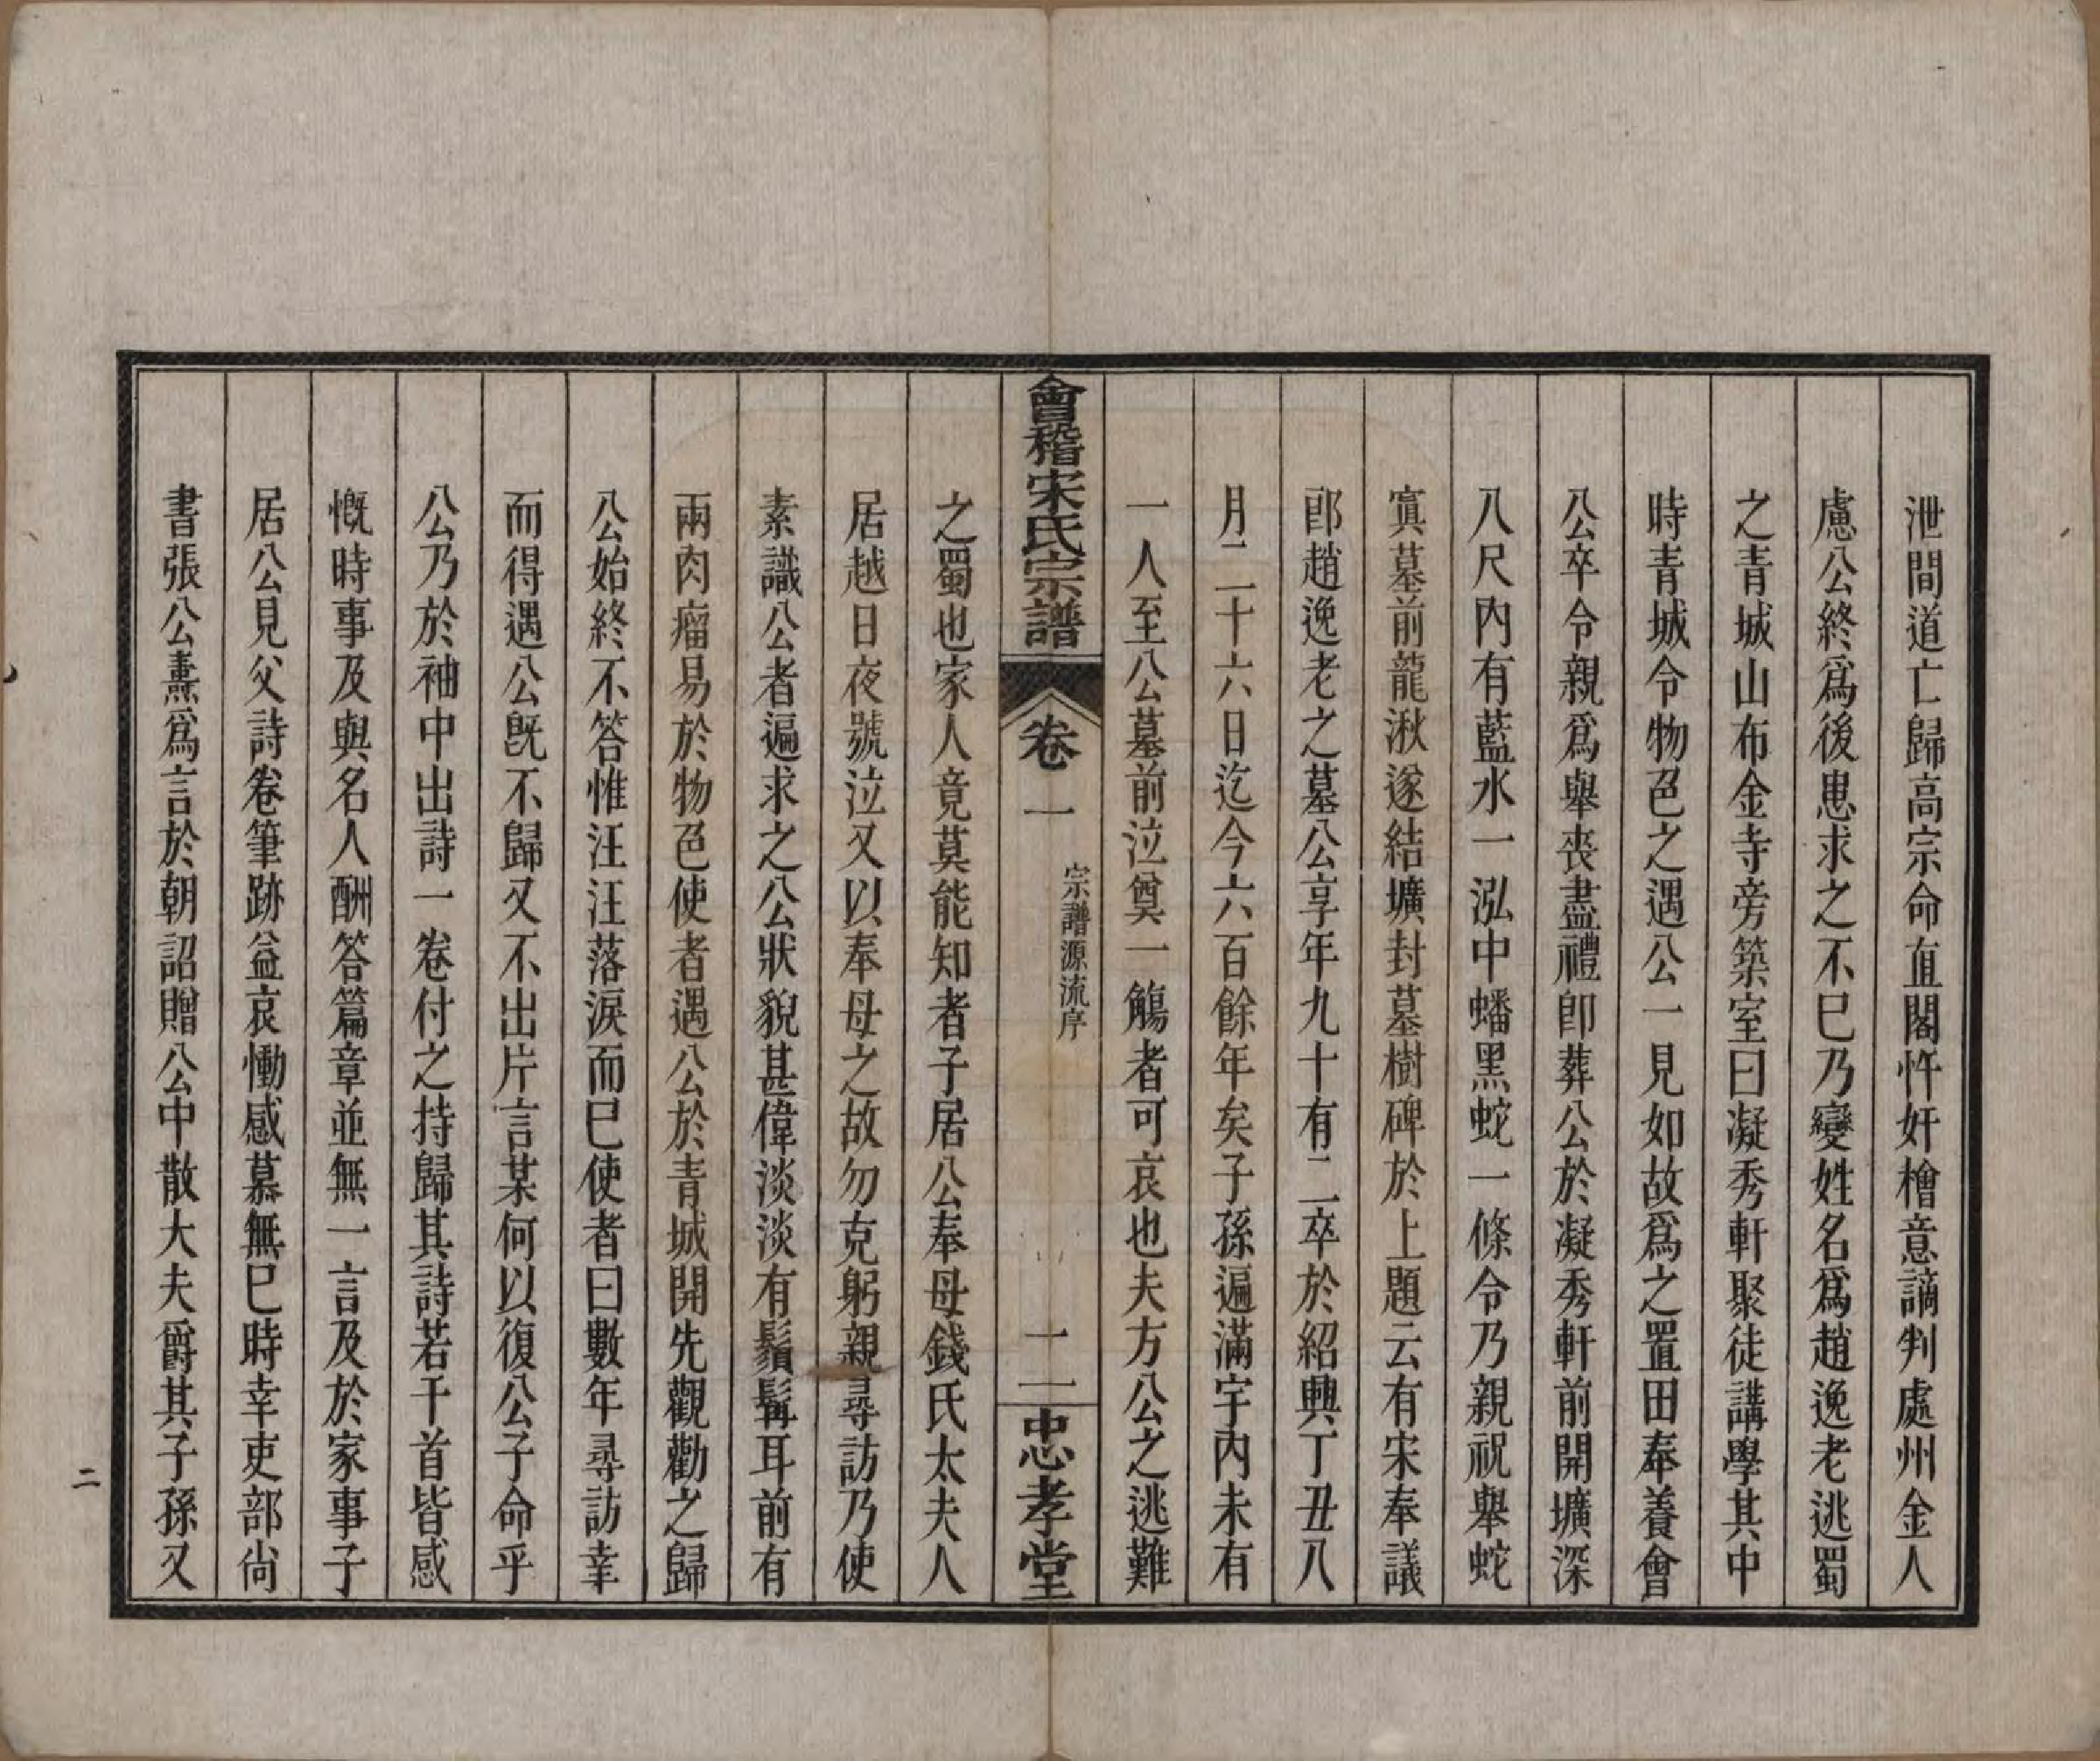 泄間道亡歸高宗命直閣忤奸檜意謫判處州金人
慮公終爲後患求之不巳乃變姓名爲趙逸老逃蜀
之青城山布金寺旁築室曰凝秀軒聚徒講學其中
時青城令物色之遇公一見如故爲之置田奉養會
公卒令親爲舉喪盡禮卽葬公於凝秀軒前開壙深
八尺內有藍水一泓中蟠黑蛇一條令乃親祝舉蛇
寘墓前龍湫遂結壙封墓樹碑於上題云有宋奉議
郎趙逸老之墓公享年九十有二卒於紹興丁丑八
月二十六日迄今六百餘年矣子孫遍滿宇內未有
一人至公墓前泣奠一觴者可哀也夫方公之逃難
會稽宋氏宗譜
卷一
宗譜源流序
二
忠孝堂
之蜀也家人竟莫能知者子居公奉母錢氏太夫人
居越日夜號泣又以奉母之故勿克躬親尋訪乃使
素識公者遍求之公狀貌甚偉淡淡有鬚髯耳前有
兩肉瘤易於物色使者遇公於青城開先觀勸之歸
公始終不答惟汪汪落淚而巳使者曰數年尋訪幸
而得遇公旣不歸又不出片言某何以復公子命乎
公乃於袖中出詩一卷付之持歸其詩若干首皆感
慨時事及與名人酬答篇章並無一言及於家事子
居公見父詩卷筆跡益哀慟感慕無巳時幸吏部尙
書張公燾爲言於朝詔贈公中散大夫爵其子孫又
二